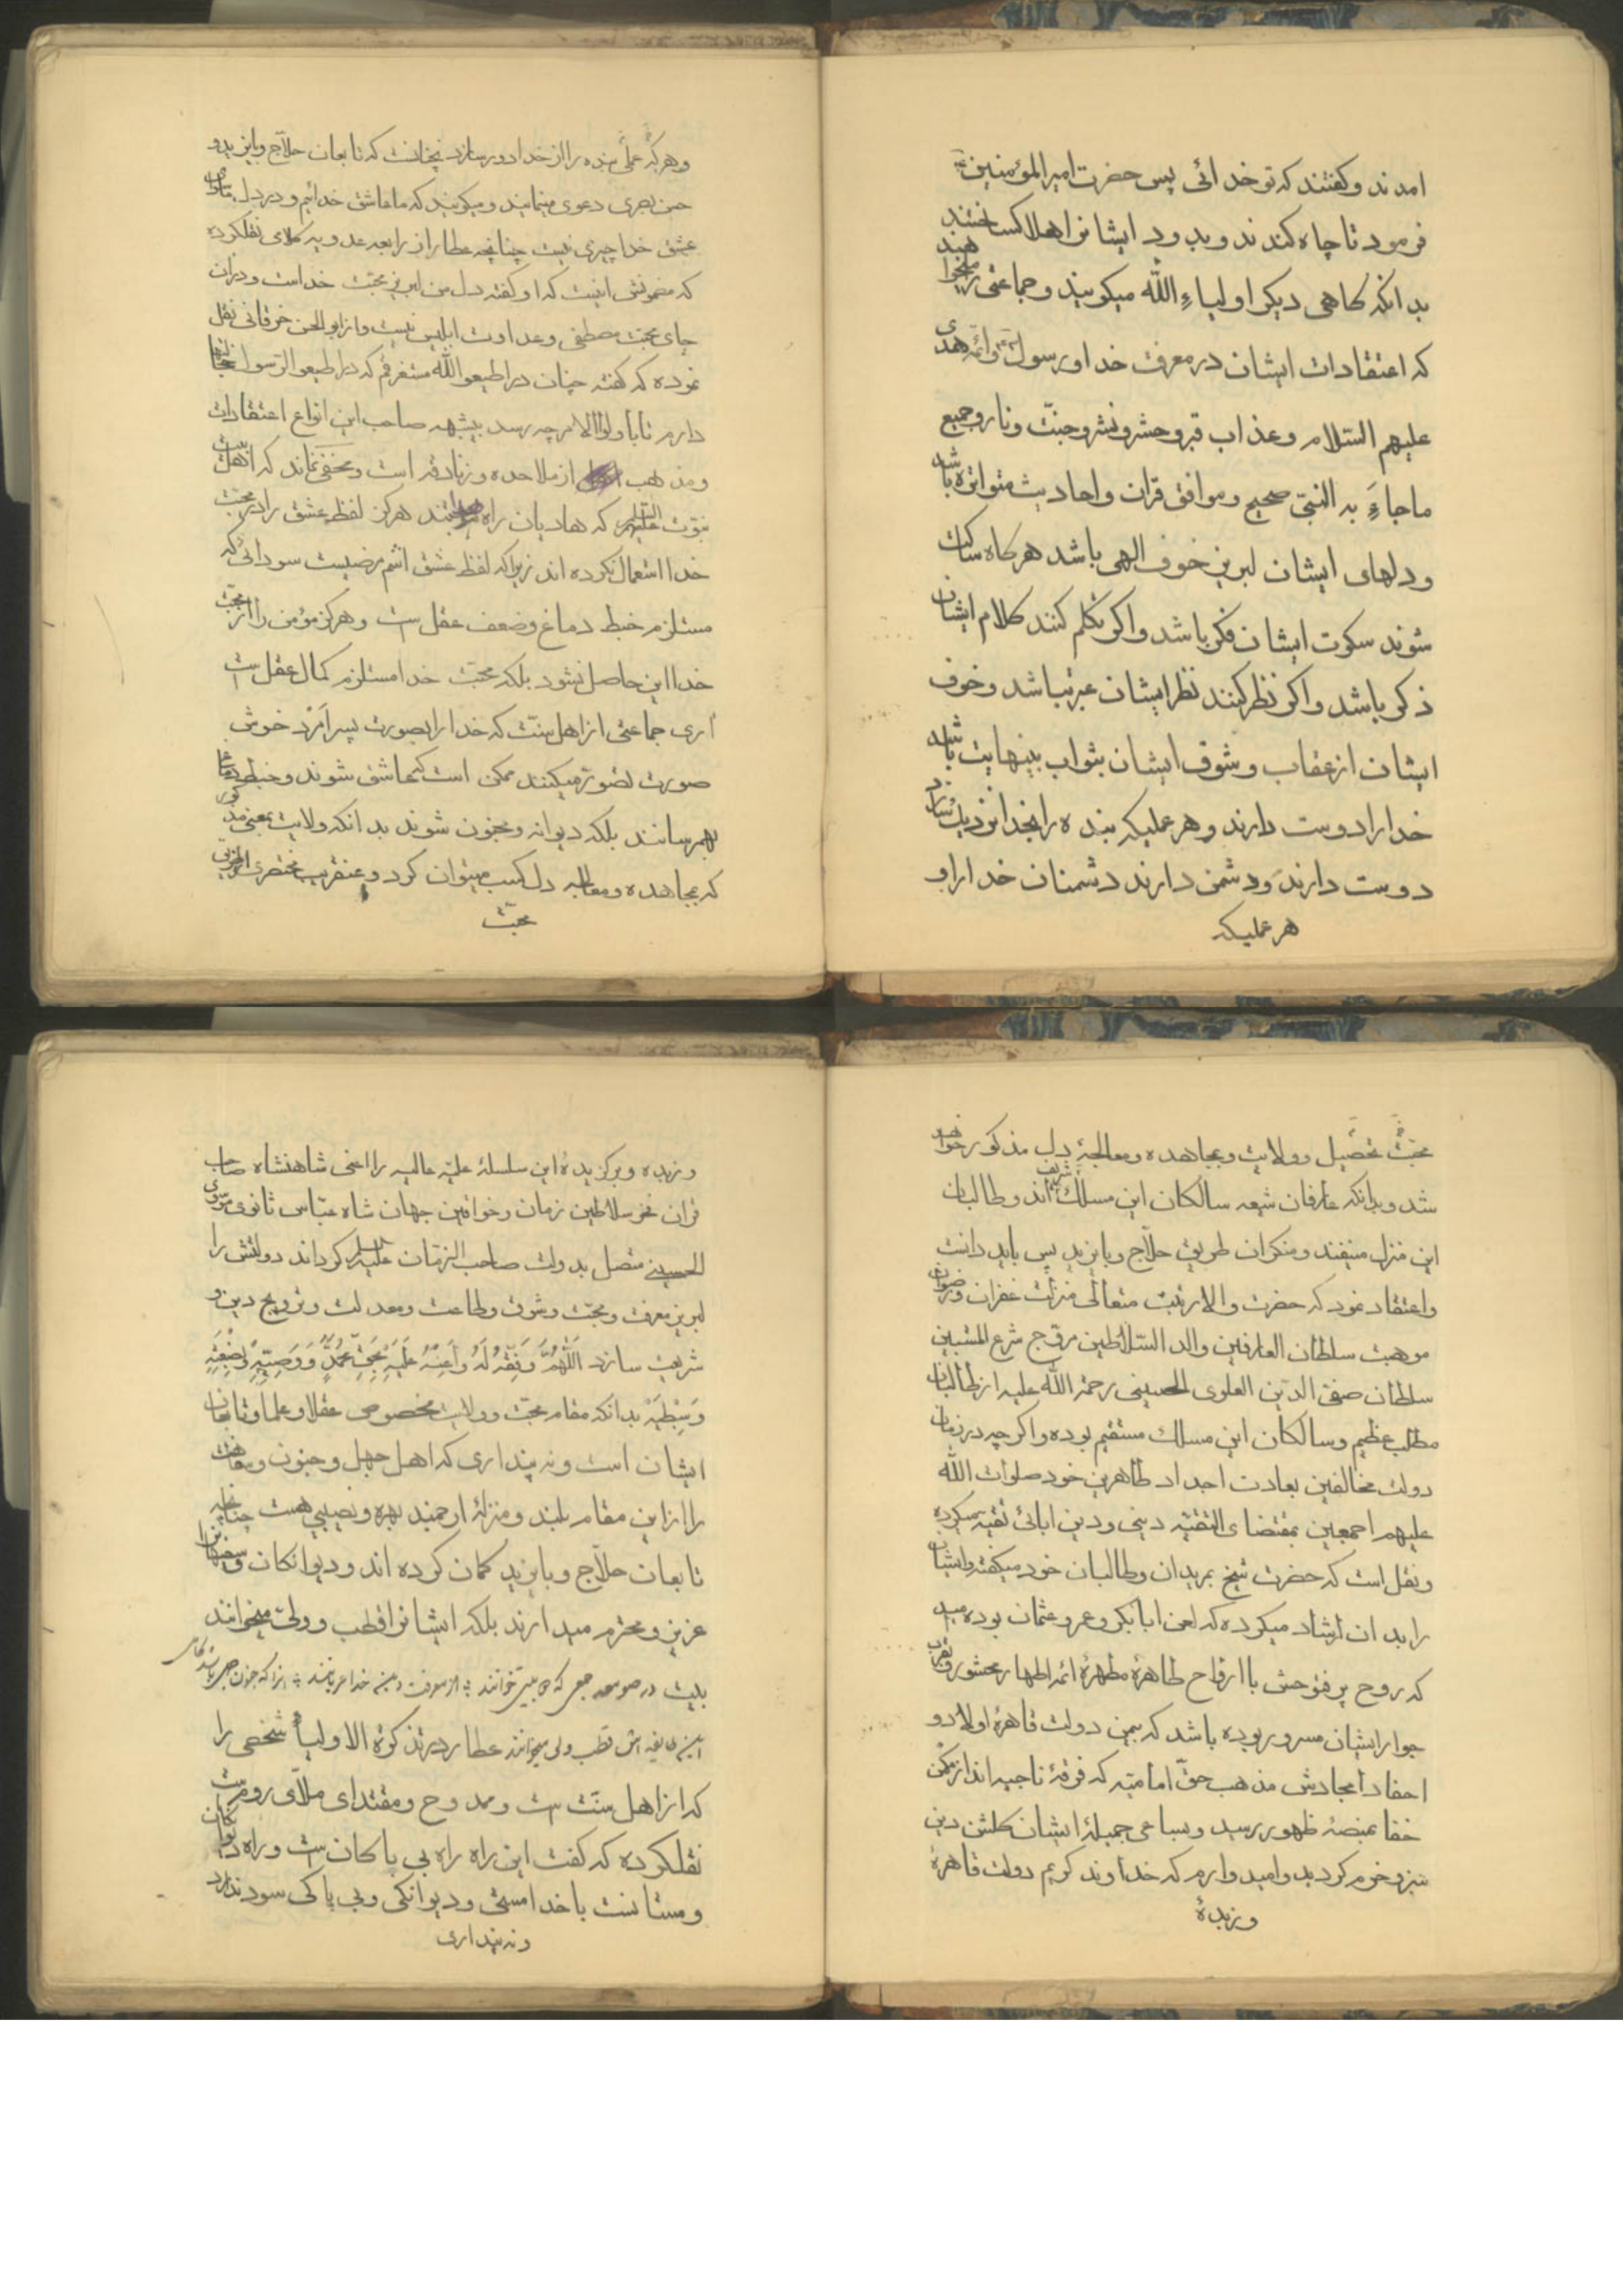 امدند و کفتند که تو خدائی پس حضرت امیر المؤمنین
فرمود تا چاه کندند و بدود ایشانرا هلاک ساختند
بدانکه کاهی دیکر اولیاء الله میکویند و جماعتی را میخواهند
که اعتقادات ایشان در معرفت خدا و رسول و ائمه هدی
علیهم السلام و عذاب قبر و حشر و نشر و جنّت و نار و جمیع
ما جاءَ به النبیّ صحیح و موافق قران و احادیث متواتره باشد
و دلهای ایشان لبریز خوف الهی باشد هرکاه ساکت
شوند سکوت ایشان فکر باشد و اکر تکلم کنند کلام ایشان
ذکر باشد و اکر نظر کنند نظر ایشان عبرت باشد و خوف
ایشان از عقاب و شوق ایشان بثواب بینهایت باشد
خدا را دوست دارند و هر عملیکه بنده را بخدا نزدیک سازد
دوست دارند و دشمن دارند دشمنان خدا را و
هر عملیکه
و هرکه عملی بنده را از خدا دور سازد نچنانست که تابعان حلّاج و بایزید و
حسن بصری دعوی مینمایند و میکویند که ما عاشق خدائیم و در دل ما سوای
عشق خدا چیزی نیست چنانچه عطار از رابعه عدویه کلامی نقلکرده
که مضمونش اینست که او کفته دل من لبریز محبّت خداست و دران
جای محبّت مصطفی و عداوت ابلیس نیست و از ابو الحسن خرقانی نقل
نموده که کفته چنان در اطیعوا الله مستغرقم که در اطیعوا الرّسول خجالتها
دارم تا باولوا الامر چه رسد بیشبهه صاحب این انواع اعتقادات
و مذهب از ملاحده و زنادقه است و مخفی نماند که اهل بیت
نبوّت علیهم السلام که هادیان راه هرکز لفظ عشق را در محبّت
خدا استعمال نکرده اند زیرا که لفظ عشق اسم مرضیست سودائی که
مستلزم خبط دماغ و ضعف عقل است و هرکز مؤمن را از محبّت
خدا این حاصل نشود بلکه محبّت خدا مستلزم کمال عقل است
اری جماعتی از اهل سنّت که خدا را بصورت پسر اَمْرَد خوش
صورت تصوّر میکنند ممکن است که عاشق شوند و خبط دماغ
بهمرسانند بلکه دیوانه و مجنون شوند بدانکه ولایت بمعنی
که بمجاهده و معالجه دل کسب میتوان کرد و عنقریب مختصری از طریق
محبّت
محبّت تحصیل و ولایت و مجاهده و معالجۀ دل مذکور خواهد
شد و بدانکه عارفان شیعه سالکان این مسلک شریف اند و طالبان
این منزل منیفند و منکران طریق حلّاج و بایزید پس باید دانست
و اعتقاد نمود که حضرت والا رتبت متعالی منزلت غفران و رضوان
موهبت سلطان العارفین والد السّلاطین مروّج شرع المتین
سلطان صفی الدّین العلوی الحسینی رحمة الله علیه از طالبان
مطلب عظیم و سالکان این مسلک مستقیم بوده و اکر چه در زمان
دولت مخالفین بعادت اجداد طاهرین خود صلوات الله
علیهم اجمعین بمقتضای التقیّه دینی و دین ابائی تقیّه میکرده
و نقل است که حضرت شیخ بمریدان و طالبان خود میکفته و ایشان
را بدان ارشاد میکرده که لعن ابابکر و عمر و عثمان
که روح پر فتوحش با ارواح طاهرۀ مطهرۀ ائمه اطهار محشور و بقرب
جوار ایشان مسرور بوده باشد که بیمن دولت قاهرۀ اولاد و
احفاد امجادش مذهب حقّ امامیّه که فرقۀ ناجیه اند از مکمن
خفا بمنصۀ ظهور رسید و بمساعی جمیلۀ ایشان کلشن دین
سبز و خرم کردید و امید وارم که خداوند کریم دولت قاهرۀ
و زبدۀ
و زبده و برکزیدۀ این سلسلۀ علیّه عالیه را اعنی شاهنشاه صاحب
قران فخر سلاطین زمان و خواقین جهان شاه عبّاس ثانی موسوی
الحسینی متصل بدولت صاحب الزمّان علیه السلام کرداند دولتش را
لبریز معرفت و محبّت و شوق و طاعت و معدلت و ترویج دین و
شریعت سازد اَللّهُمَّ وَفِّقْهُ لَهُ وَ اَعِنْهُ عَلَیْهِ بِحَقِّ مُحَمَّدٍ وَ وَصِیِّهِ وَ بَضْعَتِهِ
وَ سِبْطَیْهِ بدانکه مقام محبّت و ولایت مخصوص عقلا و علما و تابعان
ایشان است و نه پنداری که اهل جهل و جنون و سفاهت
را از این مقام بلند و منزلۀ ارجمند بهره و نصیبی هست چنانچه
تابعان حلّاج و بایزید کمان کرده اند و دیوانکان و سفیهانرا
عزیز و محترم میدارند بلکه ایشانرا قطب و ولیّ میخوانند
بلیت در صومعه جمعی که
قطب و ولی میخوانند عطار در تذکرة الاولیا شخصی را
که از اهل سنّت است و ممدوح و مقتدای ملّای رومست
نقلکرده که کفت این راه راه بی پاکان است و راه دیوانکان
و مستانست با خدا مستی و دیوانکی و بی پاکی سود ندارد
و نه پنداری